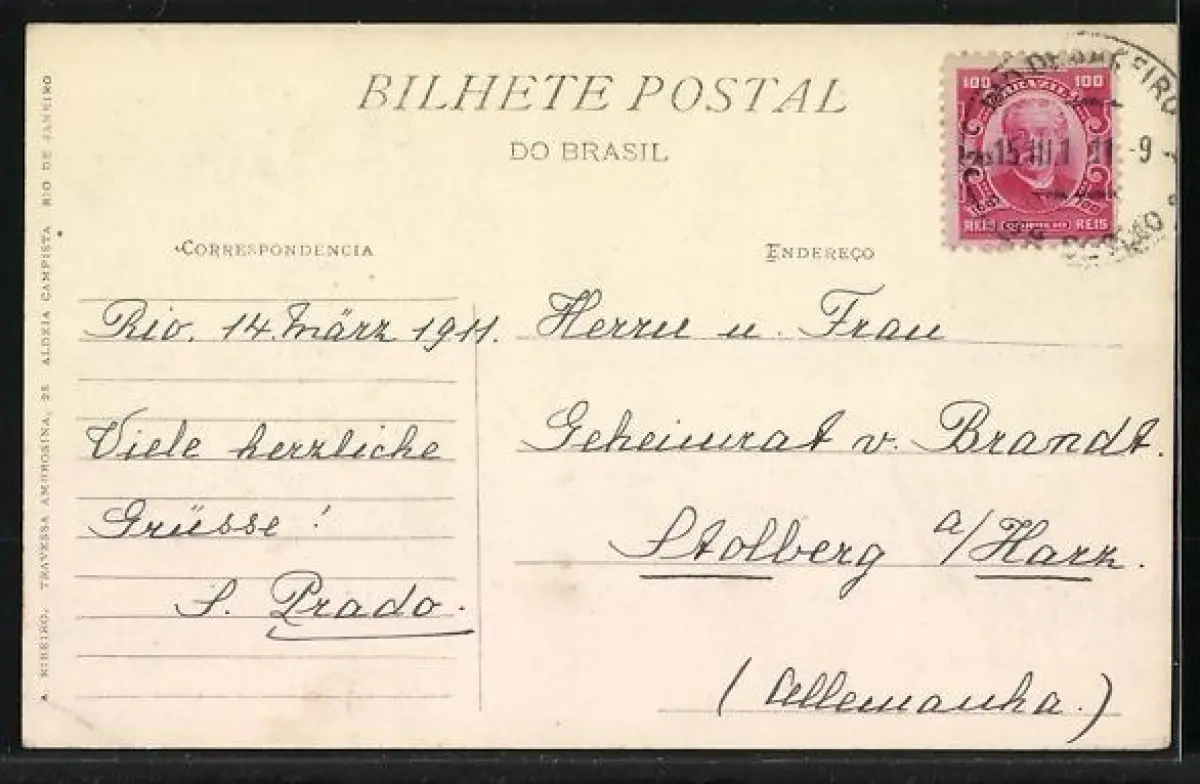 BILHETE POSTAL
DO BRASIL
CORRESPONDENCIA
ENDEREÇO
100 100
BRAZIL
REIS REIS
RIO DE JANEIRO
15 III 11 -9
A RIBEIRO, TRAVESSA AMOROSINA, 25 ALDEIA CAMPISTA RIO DE JANEIRO
Rio. 14. März 1911.
Viele herzliche
Grüsse!
S. Prado.
Herrn u. Frau
Geheimrat v. Brandt.
Stolberg a/Harz.
(Allemanha.)